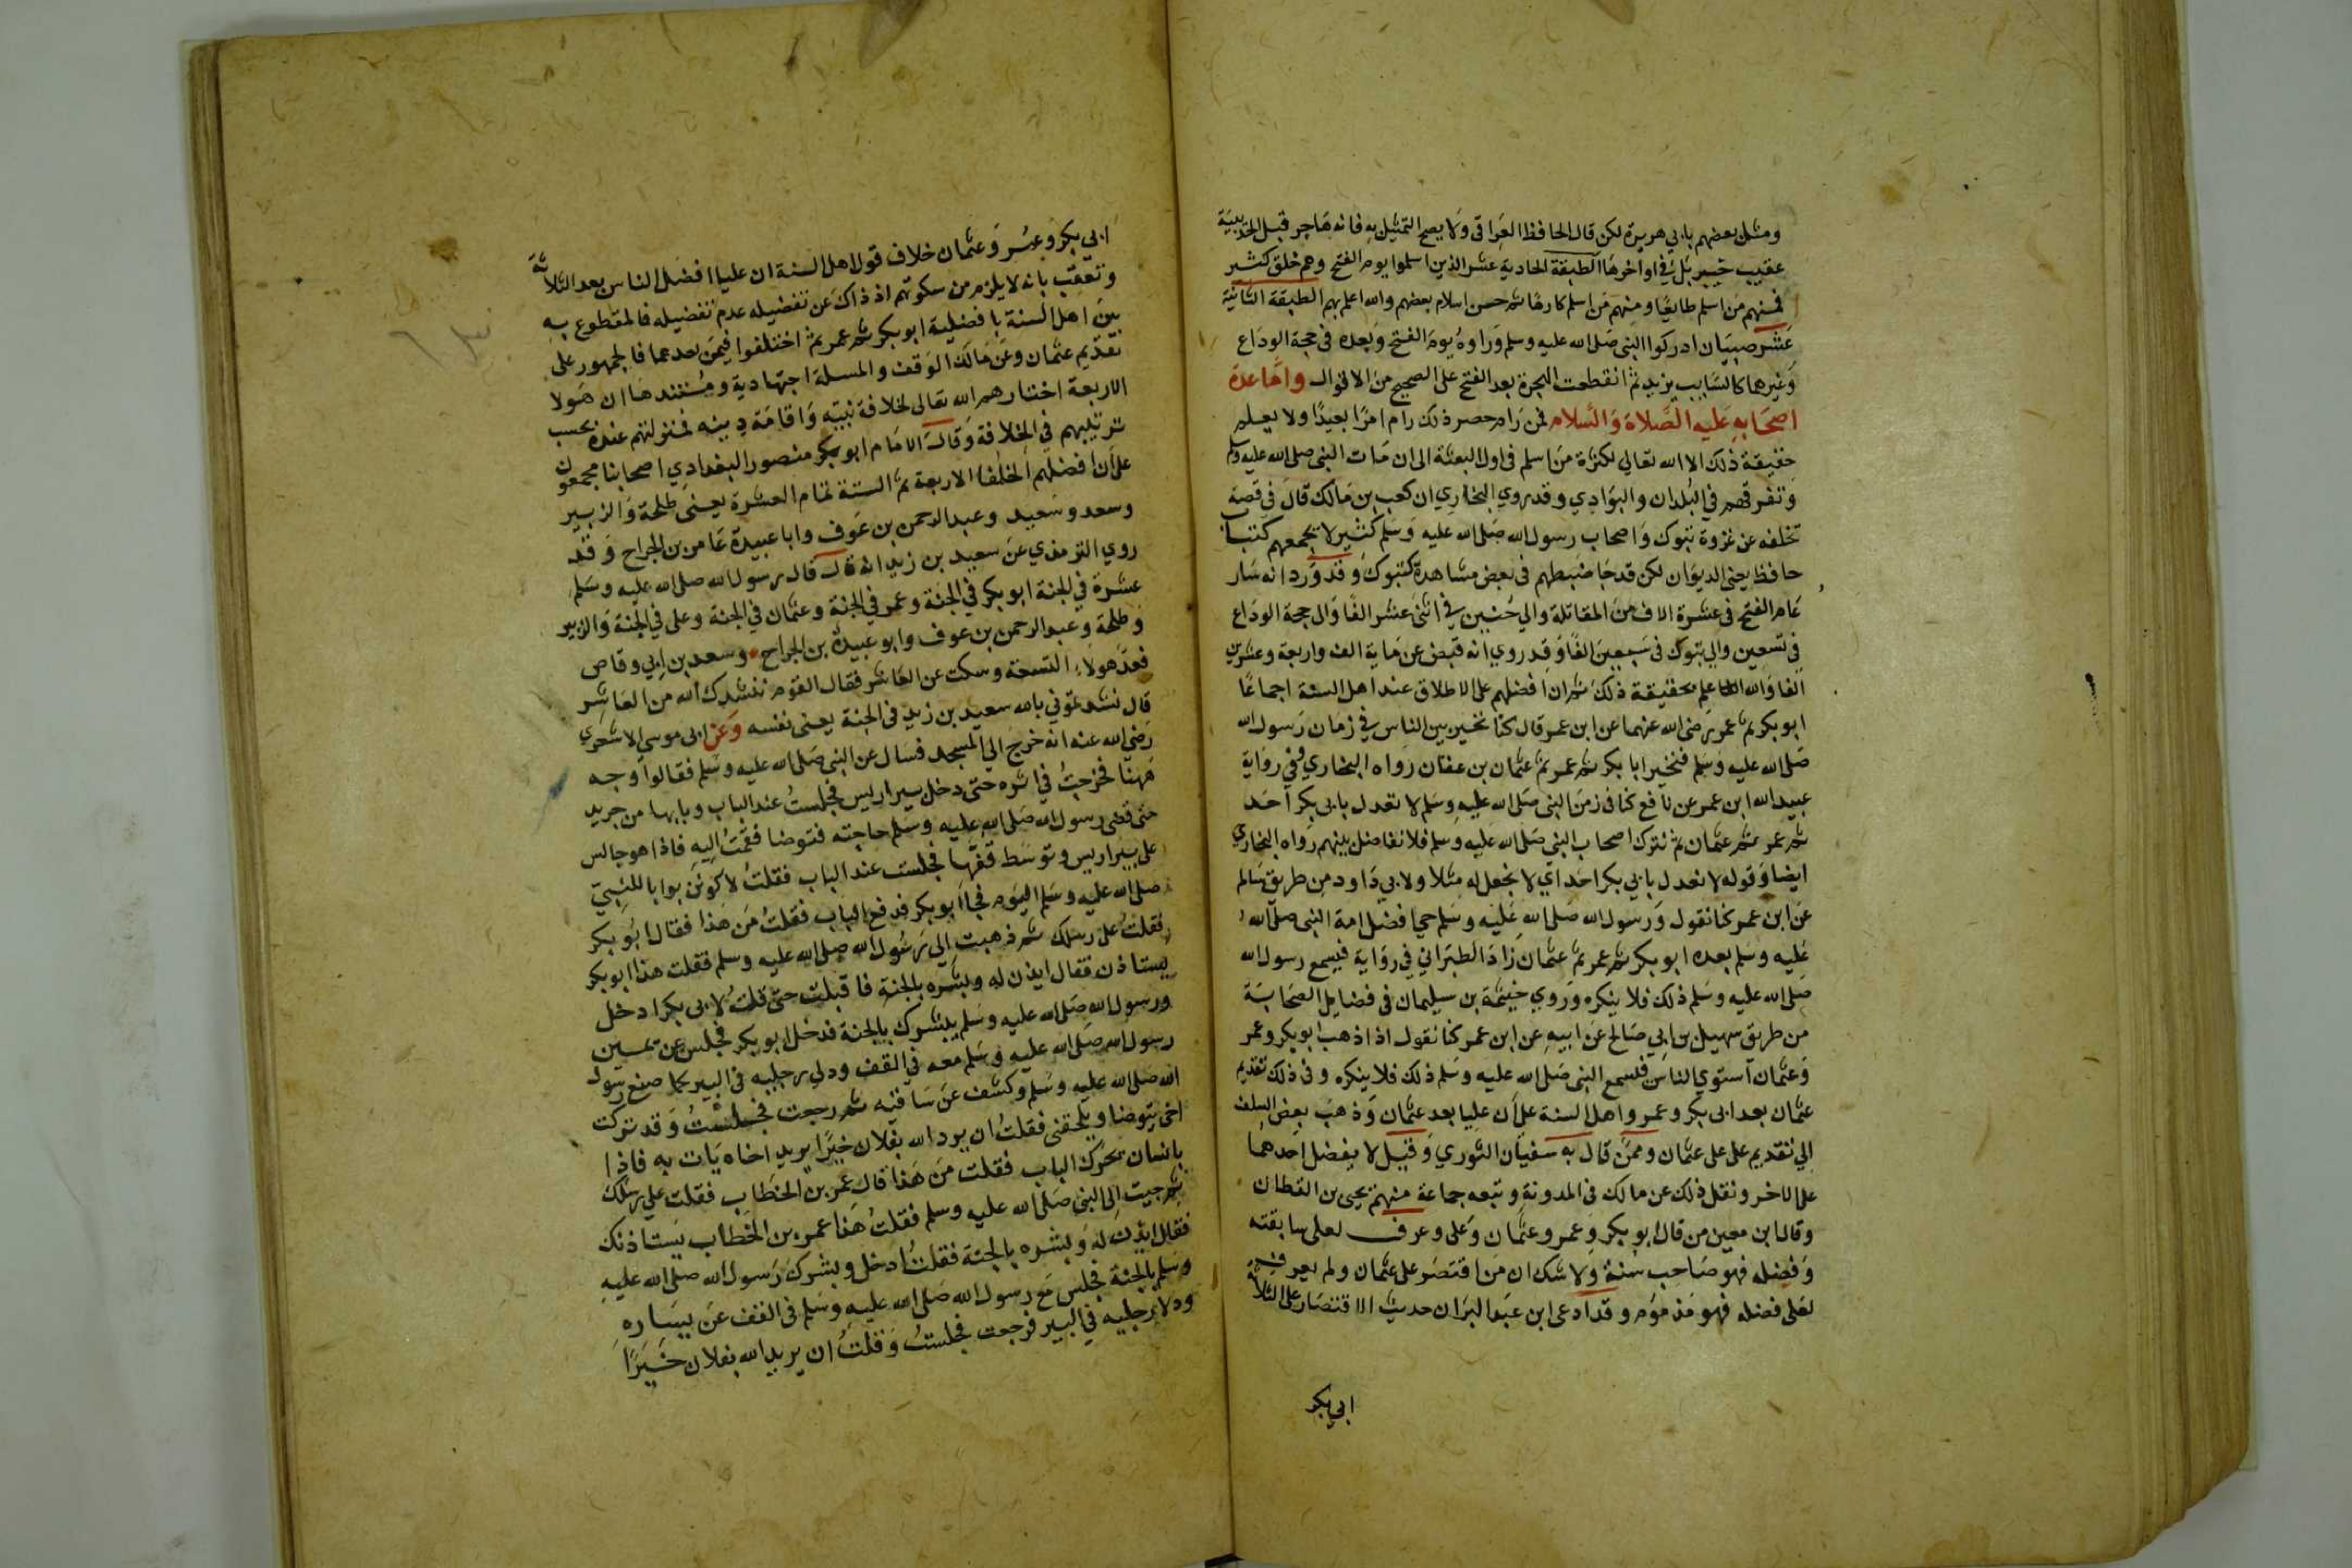 ومثل بعضهم بابي هريرة لكن قال الحافظ العراقى ولا يصح التمثيل به فانه هاجر قبل الحديبية
عقيب خيبر بل فى اواخرها الطبقة الحادية عشر الذين اسلموا يوم الفتح وهم خلق كثير
فمنهم من اسلم طايعا ومنهم من اسلم كارها ثم حسن اسلام بعضهم والله اعلم بهم الطبقة الثانية
عشر صبيان ادركوا النبى صلى الله عليه وسلم وراوه يوم الفتح وبعده فى حجة الوداع
وغيرها كالسايب بن يزيد ثم انقطعت الهجرة بعد الفتح على الصحيح من الاقوال واما عدة
اصحابه عليه الصلاة والسلام فمن رام حصر ذلك رام امرا بعيدا ولا يعلم
حقيقة ذلك الا الله تعالي لكثرة من اسلم فى اول البعثة الى ان مات النبى صلى الله عليه وسلم
وتفرقهم في البلدان والبوادي وقد روي البخاري ان كعب بن مالك قال في قصة
تخلفه عن غزوة تبوك واصحاب رسول الله صلى الله عليه وسلم كثير لا يجمعهم كتاب
حافظ يعنى الديوان لكن قد جا ضبطهم فى بعض مشاهده كتبوك وقد ورد انه سار
عام الفتح فى عشرة الاف من المقاتلة والي حنين في اثنى عشر الفا والى حجة الوداع
في تسعين والي تبوك فى سبعين الفا وقد روي انه قبض عن ماية الف واربعة وعشرين
الفا والله اعلم بحقيقة ذلك ثم ان افضلهم على الاطلاق عند اهل السنة اجماعا
ابو بكر ثم عمر رضى الله عنهما عن ابن عمر قال كنا نخير بين الناس في زمان رسول الله
صلى الله عليه وسلم فنخير ابا بكر ثم عمر ثم عثمان بن عفان رواه البخاري وفى رواية
عبيد الله ابن عمر عن نافع كنا فى زمن النبى صلى الله عليه وسلم لا نعدل بابى بكر احد
ثم عمر ثم عثمان ثم نترك اصحاب النبى صلى الله عليه وسلم فلا نفاضل بينهم رواه البخاري
ايضا وقوله لا نعدل بابي بكر احدا اي لا نجعل له مثلا ولابي داود من طريق سالم
عن ابن عمر كنا نقول ورسول الله صلى الله عليه وسلم حي افضل امة النبى صلى الله
عليه وسلم بعده ابو بكر ثم عمر ثم عثمان زاد الطبراني في رواية فيسمع رسول الله
صلى الله عليه وسلم ذلك فلا ينكره وروي خيثمة بن سليمان فى فضايل الصحابة
من طريق سهيل بن ابي صالح عن ابيه عن ابن عمر كنا نقول اذا ذهب ابو بكر وعمر
وعثمان استوي الناس فيسمع النبى صلى الله عليه وسلم ذلك فلا ينكره وفى ذلك تقديم
عثمان بعد ابى بكر وعمر واهل السنة على ان عليا بعد عثمان وذهب بعض السلف
الي تقديم على على عثمان وممن قال به سفيان الثوري وقيل لا يفضل احدهما
على الاخر ونقل ذلك عن مالك فى المدونة وتبعه جماعة منهم يحيى بن القطان
وقال ابن معين من قال ابو بكر وعمر وعثمان وعلى وعرف لعلى سابقته
وفضله فهو صاحب سنة ولا شك ان من اقتصر على عثمان ولم يعرف
لعلى فضله فهو مذموم وقد ادعى ابن عبد البر ان حديث الاقتصار على الثلاثة
ابى بكر
ابي بكر وعمر وعثمان خلاف قول اهل السنة ان عليا افضل الناس بعد الثلاثة
وتعقب بانه لا يلزم من سكوتهم اذ ذاك عن تفضيله عدم تفضيله فالمقطوع به
بين اهل السنة بافضلية ابو بكر ثم عمر ثم اختلفوا فيمن بعدهما فالجمهور على
تقديم عثمان وعن مالك الوقف والمسلة اجتهادية ومستندها ان هولا
الاربعة اختارهم الله تعالى لخلافة نبيه واقامة دينه فمنزلتهم عنده بحسب
ترتيبهم في الخلافة وقال الامام ابو بكر منصور البغدادي اصحابنا مجمعون
على ان افضلهم الخلفا الاربعة ثم الستة تمام العشرة يعنى طلحة والزبير
وسعد وسعيد وعبد الرحمن بن عوف وابا عبيدة عامر بن الجراح وقد
روي الترمذي عن سعيد بن زيد انه قال قال رسول الله صلى الله عليه وسلم
عشرة في الجنة ابو بكر في الجنة وعمر في الجنة وعثمان في الجنة وعلى في الجنة والزبير
وطلحة وعبد الرحمن بن عوف وابو عبيدة بن الجراح وسعد بن ابي وقاص
فعد هولاء التسعة وسكت عن العاشر فقال القوم ننشدك الله من العاشر
قال نشدتموني بالله سعيد بن زيد فى الجنة يعنى نفسه وعن ابى موسي الاشعري
رضي الله عنه انه خرج الي المسجد فسال عن النبى صلى الله عليه وسلم فقالوا وجه
ههنا فخرجت في اثره حتى دخل بير اريس فجلست عند الباب وبابها من جريد
حتى قضى رسول الله صلى الله عليه وسلم حاجته فتوضا فقمت اليه فاذا هو جالس
على بير اريس وتوسط قفها فجلست عند الباب فقلت لاكونن بوابا للنبي
صلى الله عليه وسلم اليوم فجا ابو بكر فدفع الباب فقلت من هذا فقال ابو بكر
فقلت على رسلك ثم ذهبت الي رسول الله صلى الله عليه وسلم فقلت هذا ابو بكر
يستاذن فقال ايذن له وبشره بالجنة فاقبلت حتى قلت لابى بكر ادخل
ورسول الله صلى الله عليه وسلم يبشرك بالجنة فدخل ابو بكر فجلس عن يمين
رسول الله صلى الله عليه وسلم معه في القف ودلي رجليه فى البير كما صنع رسول
الله صلى الله عليه وسلم وكشف عن ساقيه ثم رجعت فجلست وقد تركت
اخى يتوضا ويلحقنى فقلت ان يرد الله بفلان خيرا يريد اخاه يات به فاذا
بانسان يحرك الباب فقلت من هذا قال عمر بن الخطاب فقلت علي رسلك
ثم جيت الى النبى صلى الله عليه وسلم فقلت هذا عمر بن الخطاب يستاذنك
فقال ايذن له وبشره بالجنة فقلت ادخل وبشرك رسول الله صلى الله عليه
وسلم بالجنة فجلس مع رسول الله صلى الله عليه وسلم فى القف عن يساره
ودلا رجليه في البير فرجعت فجلست وقلت ان يريد الله بفلان خيرا